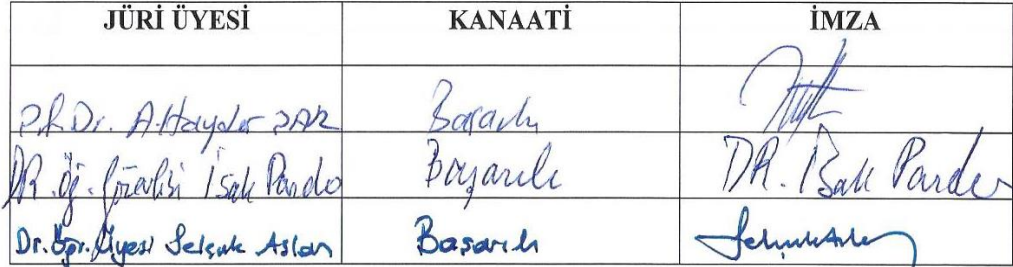 JÜRİ ÜYESİ KANAATİ İMZA
Dr. A. Haydar Başarılı
DR. Öğ. Görevlisi İsak Pardo Başarılı DR. İsak Pardo
Dr. Öğr. Üyesi Selçuk Aslan Başarılı Selçuk Aslan